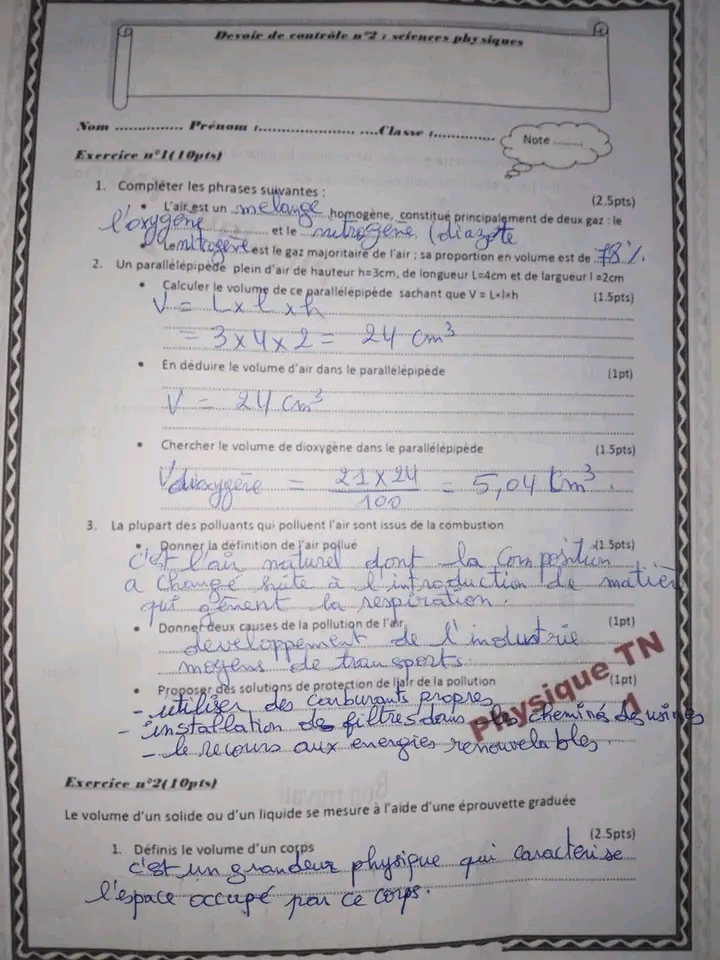 Devoir de contrôle n°2 : sciences physiques
Nom .............. Prénom :.................... ....Classe :.............
Note ........
Exercice n°1(10pts)
1. Compléter les phrases suivantes :
(2.5pts)
• L'air est un melange homogène, constitué principalement de deux gaz : le
l'oxygène ............ et le nitrogène (diazote
• Le nitrogène est le gaz majoritaire de l'air ; sa proportion en volume est de 78 %.
2. Un parallélépipède plein d'air de hauteur h=3cm, de longueur L=4cm et de largeur l =2cm
• Calculer le volume de ce parallélépipède sachant que V = L×l×h (1.5pts)
V = L x l x h
= 3 x 4 x 2 = 24 cm³
• En déduire le volume d'air dans le parallélépipède (1pt)
V = 24 cm³
• Chercher le volume de dioxygène dans le parallélépipède (1.5pts)
Vdioxygène = 21 x 24 / 100 = 5,04 cm³.
3. La plupart des polluants qui polluent l'air sont issus de la combustion
• Donner la définition de l'air pollué (1.5pts)
c'est l'air naturel dont la composition
a changé suite à l'introduction de matièr
qui gênent la respiration.
• Donner deux causes de la pollution de l'air (1pt)
developpement de l'industrie
moyens de transports.
• Proposer des solutions de protection de l'air de la pollution (1pt)
- utiliser des carburants propres
- installation de filtres dans les cheminé des usines
- le recours aux energies renouvelables.
Physique TN
1
Exercice n°2(10pts)
Le volume d'un solide ou d'un liquide se mesure à l'aide d'une éprouvette graduée
(2.5pts)
1. Définis le volume d'un corps
c'est un grandeur physique qui caracterise
l'espace occupé par ce corps.